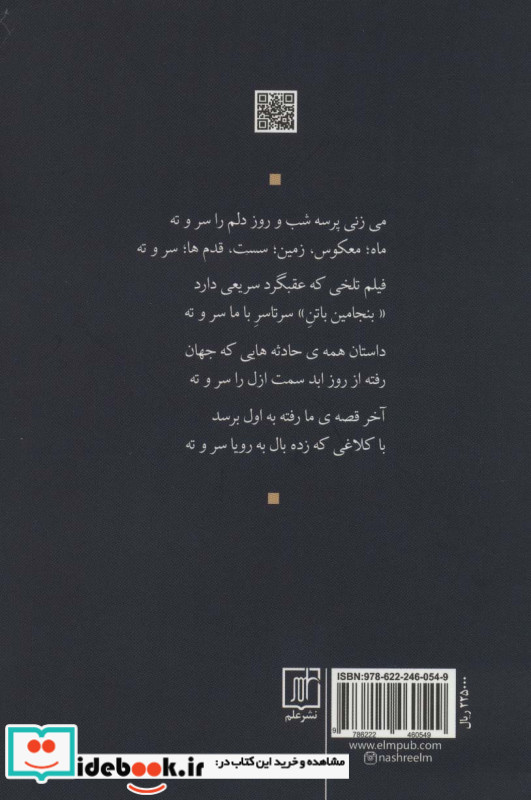 می زنی پرسه شب و روز دلم را سر و ته
ماه؛ معکوس، زمین؛ سست، قدم ها؛ سر و ته
فیلم تلخی که عقبگرد سریعی دارد
« بنجامین باتنِ» سرتاسرِ با ما سر و ته
داستان همه ی حادثه هایی که جهان
رفته از روز ابد سمت ازل را سر و ته
آخر قصه ی ما رفته به اول برسد
با کلاغی که زده بال به رویا سر و ته
ISBN: 978-622-246-054-9
9 786222 460549
www.elmpub.com
nashreelm
۲۲۵۰۰۰ ریال
علم
نشر علم
مشاهده و خرید این کتاب در:
idebook.ir